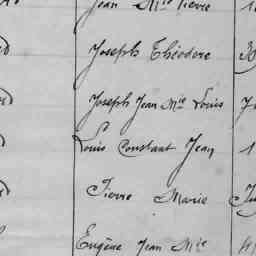 Jean Mie Pierre
Joseph Théodore
Joseph Jean Mie Louis
Louis Constant Jean
Pierre Marie
Eugène Jean Mie